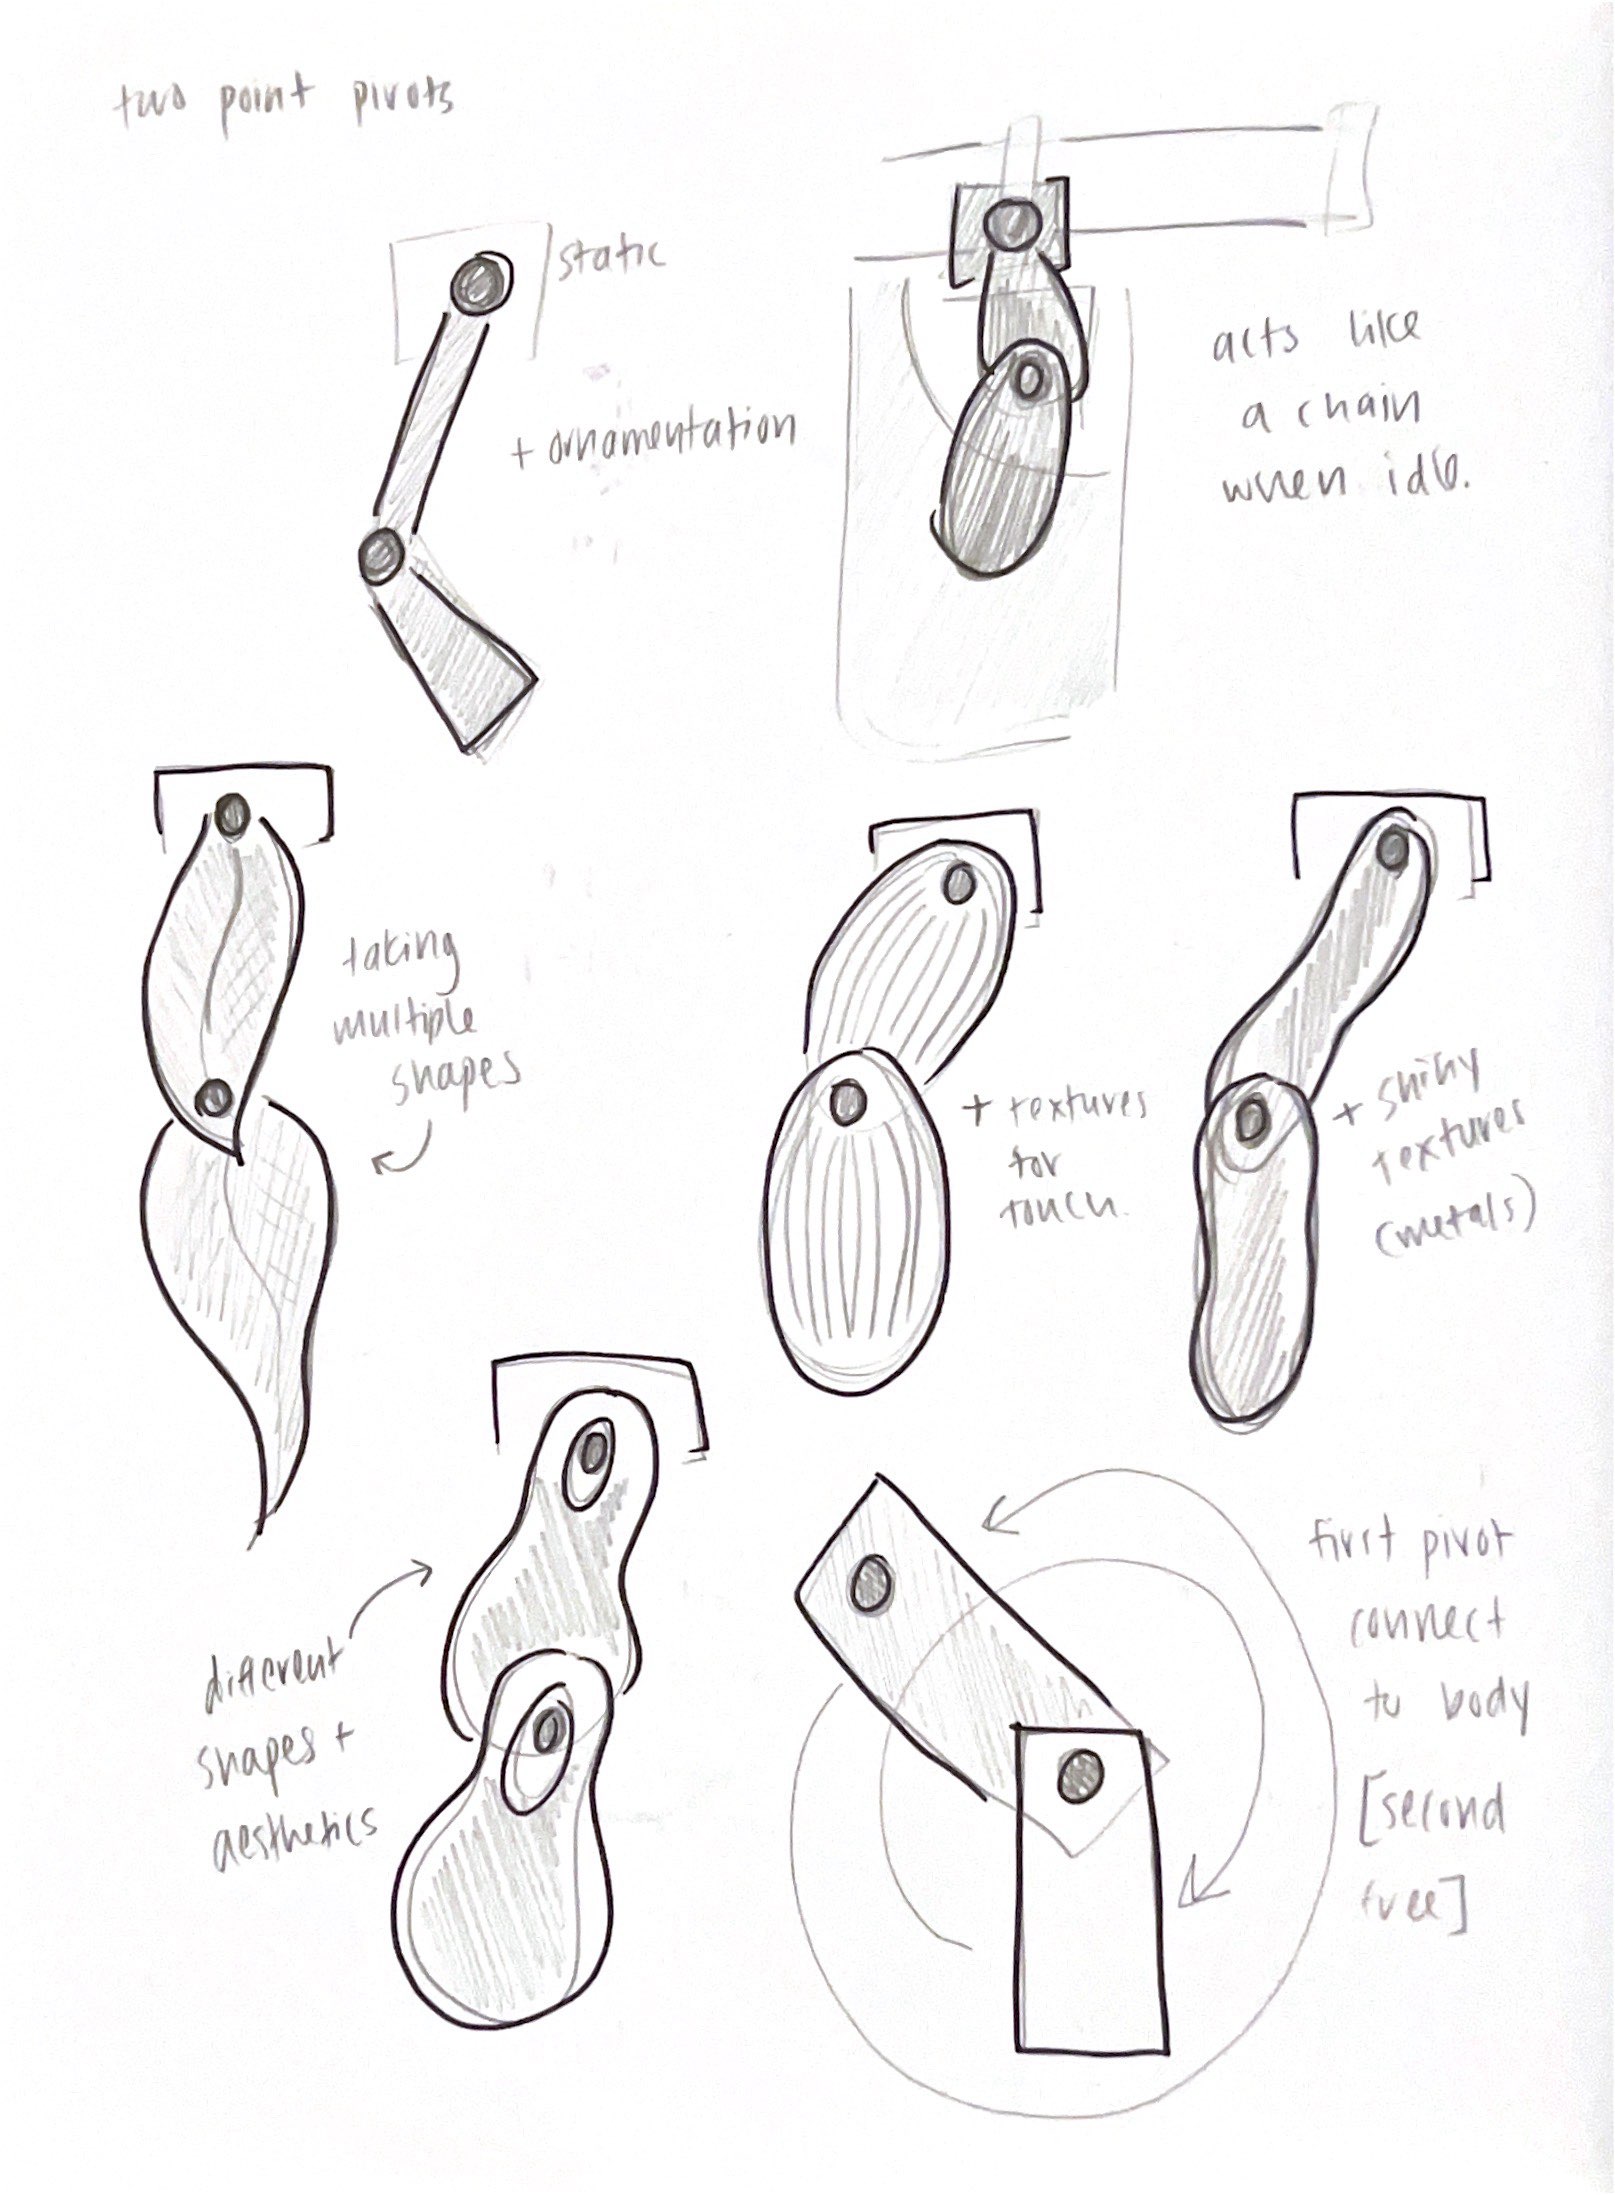 two point pivots
static
+ ornamentation
acts like
a chain
when idle.
taking
multiple
shapes
+ textures
for
touch.
+ shiny
textures
(metals)
different
shapes +
aesthetics
first pivot
connect
to body
[second
free]